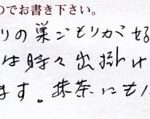 のでお書き下さい。
りの巣ごもりが好
は時々出掛け
ます。抹茶にも